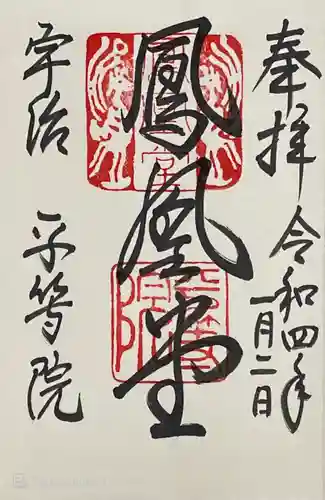 奉拝
令和四年
一月二日
鳳凰堂
宇治 平等院